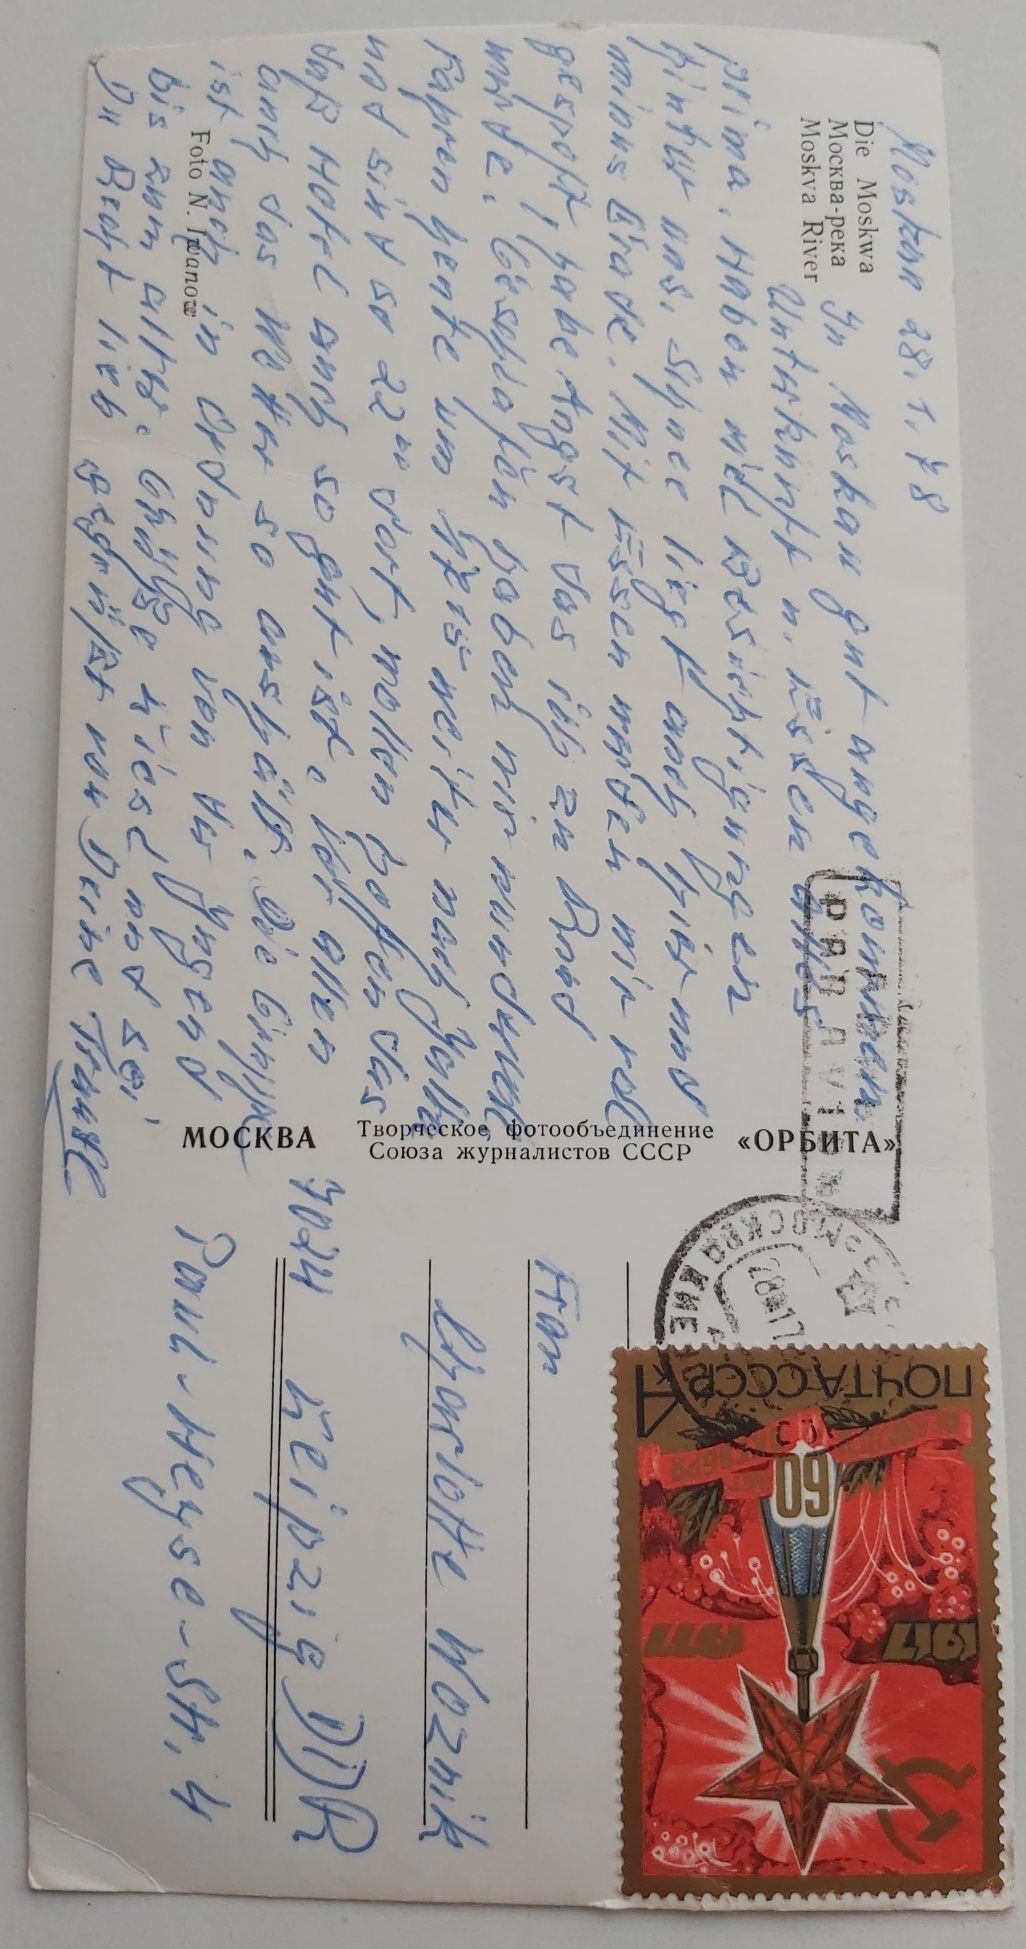 Die Moskwa
Москва-река
Moskva River
Moskau 28. 1. 78
In Moskau gut angekommen.
Unterkunft u. Essen alles
prima. Haben viel Besichtigungen
hinter uns. Schnee liegt auch hier und
minus Grade. Mit Essen werden wir voll
gestopft, habe Angst das ich zu Rund
werde. Geschlafen haben wir wunderbar
Fahren heute um weiter nach Jalta
und sind so 22⁰⁰ dort, wollen hoffen das
das Hotel auch so gut ist. Vor allen
auch das Wetter so aushält. Die Gruppe
ist auch in Ordnung von der Jugend
bis zum alter. Grüße Diese und sei
Du Recht lieb gegrüßt von Deine Traudel
Foto N. Iwanow
МОСКВА
Творческое фотообъединение
Союза журналистов СССР
«ОРБИТА»
PAR AVION
МОСКВА
ПОЧТА СССР
4к
60
1917
1977
Frau
Lieselotte Woznik
7024 Leipzig DDR
Paul-Heyse-Str. 4